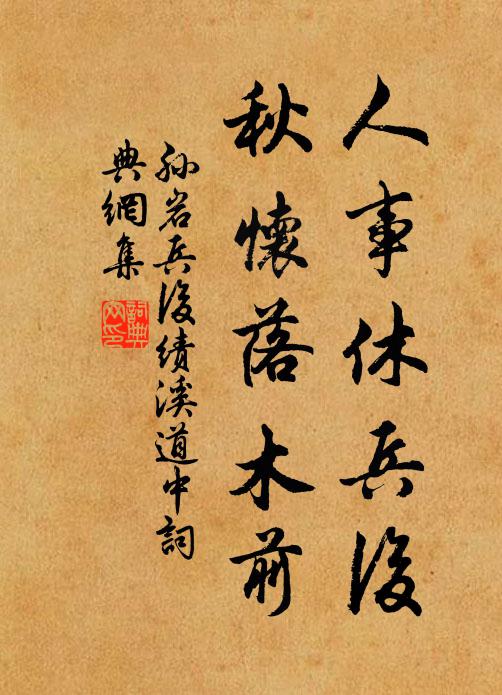 人事休兵後
秋懷落木前
孫岩兵後績溪道中詞
典網集
詞典
网印